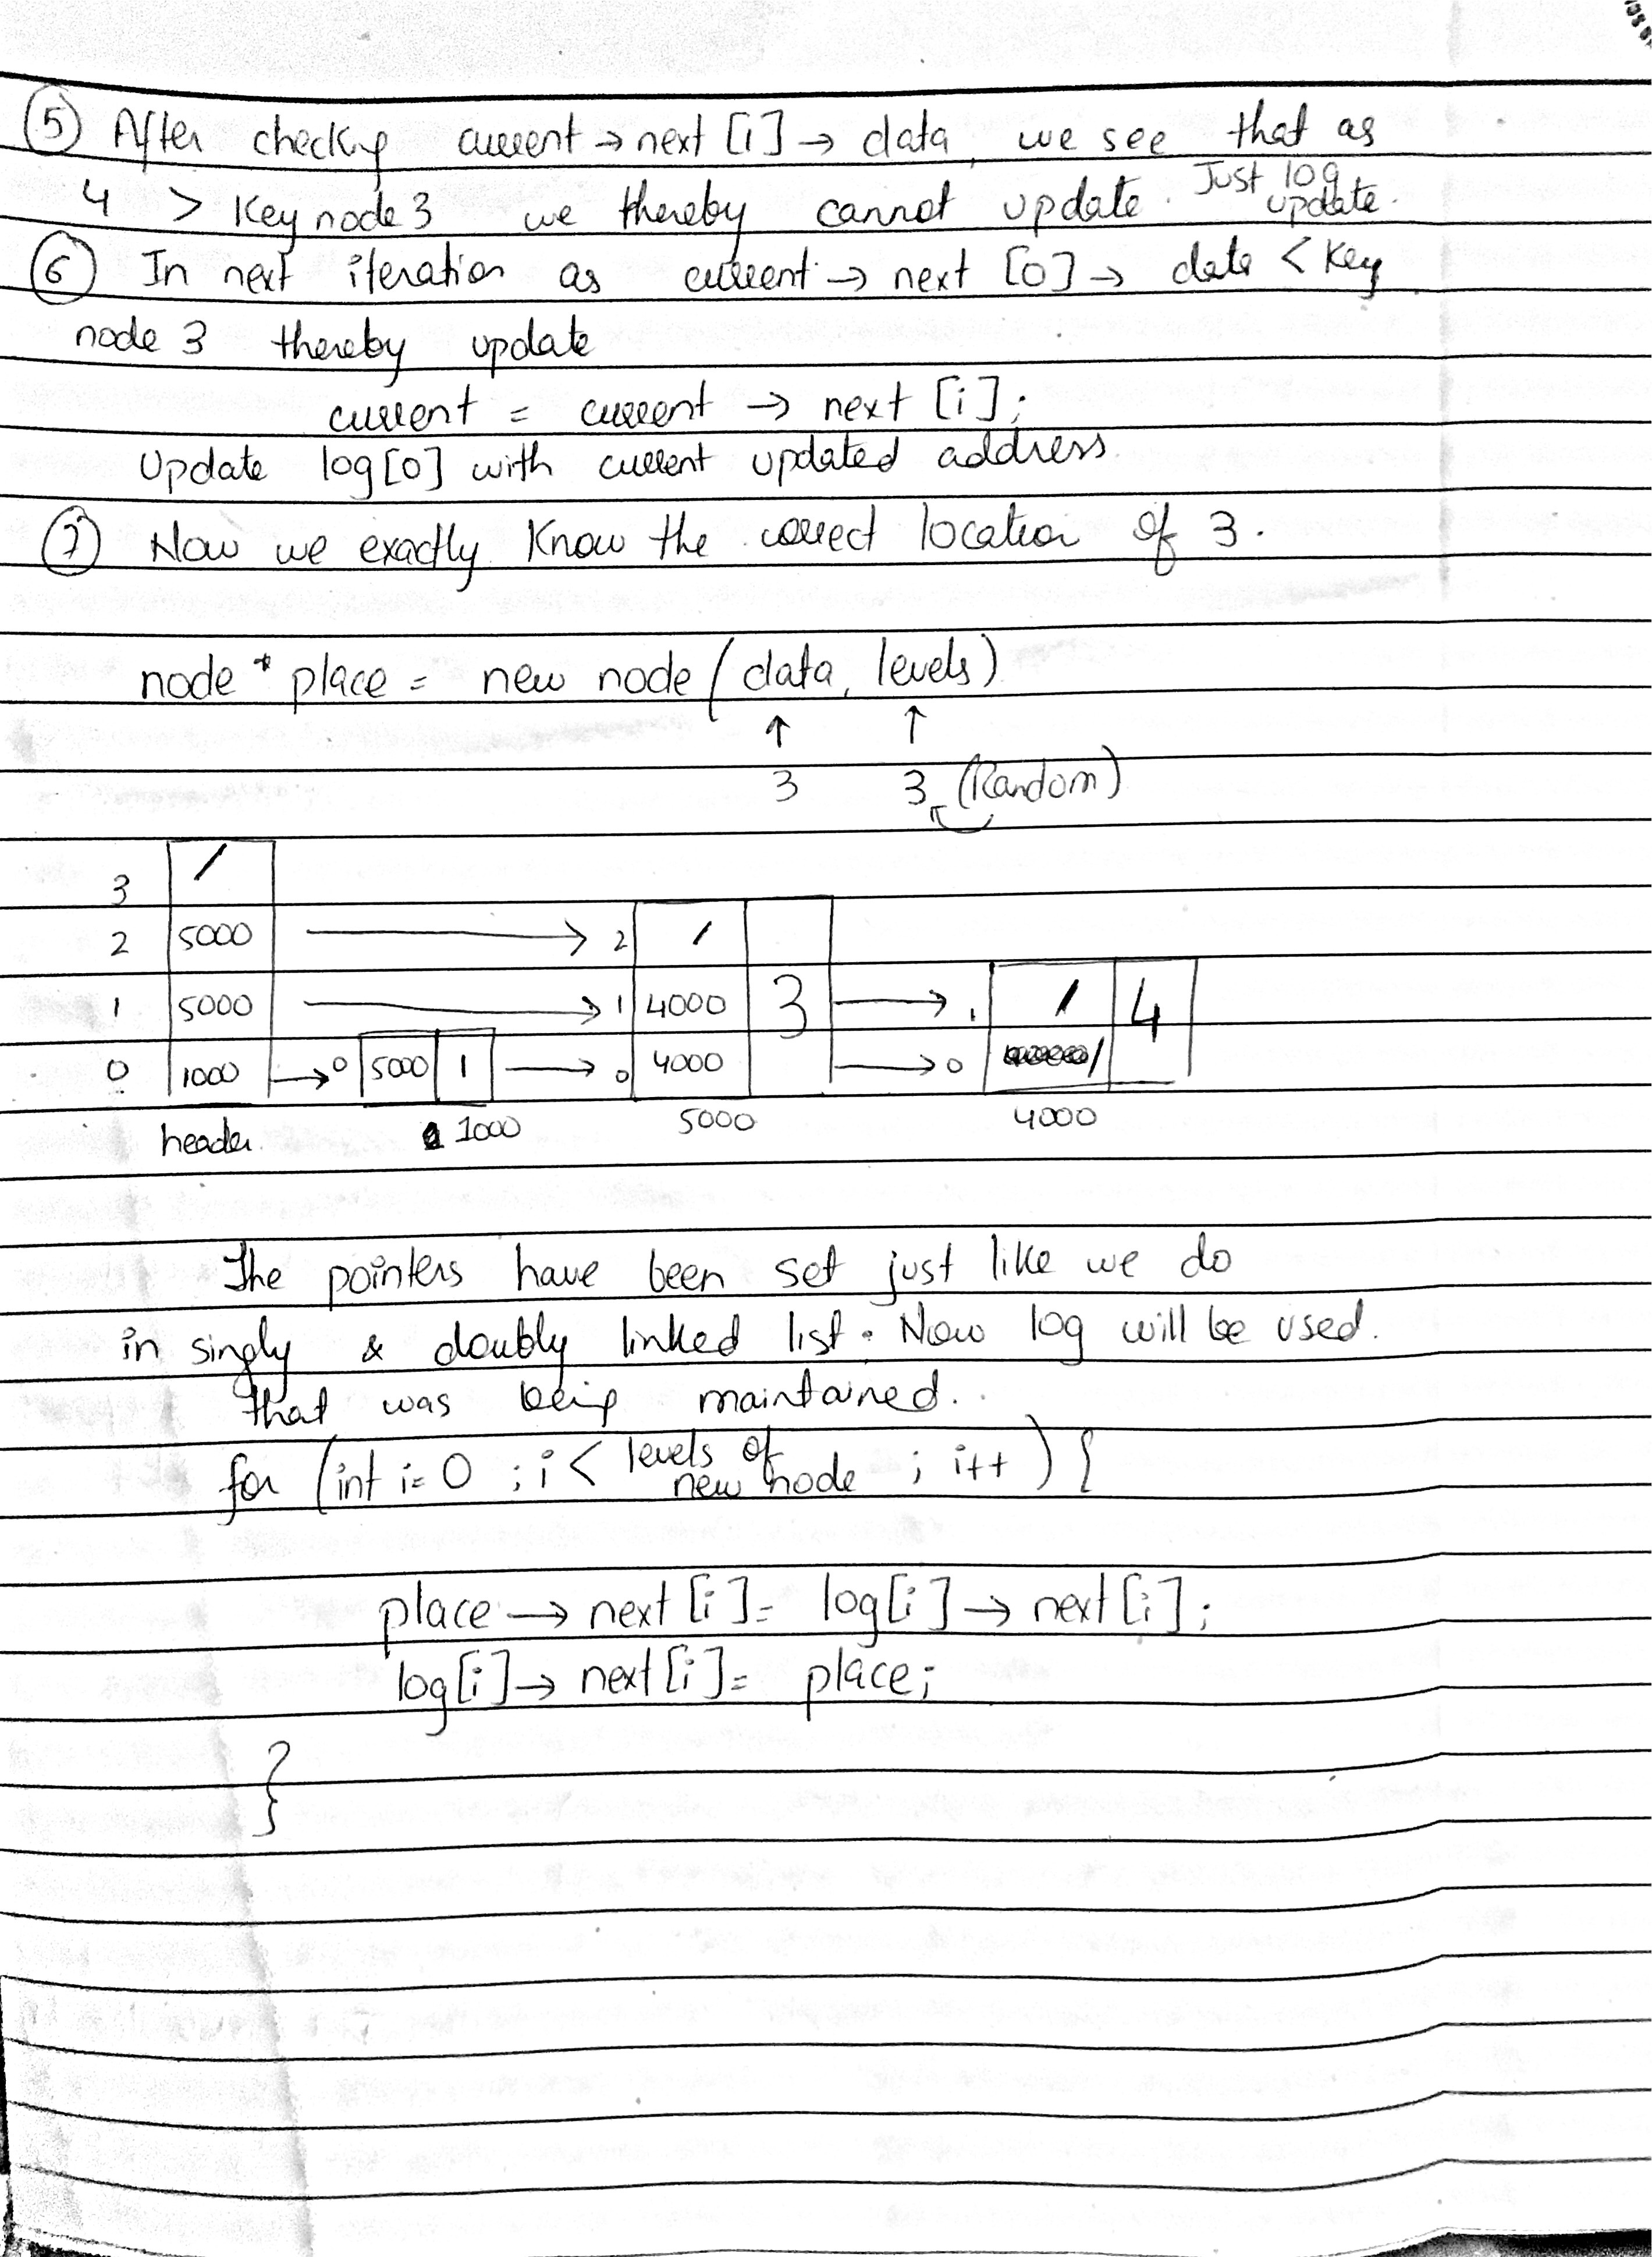 ⑤ After checking current → next [i] → data, we see that as
4 > Key node 3 we thereby cannot update. Just log update.
⑥ In next iteration as current → next [0] → data < Key
node 3 thereby update
current = current → next [i];
Update log[0] with current updated address.
⑦ Now we exactly know the correct location of 3.
node * place = new node (data, levels)
↑ ↑
3 3 (Random)
3 /
2 5000 → 2 /
1 5000 → 1 4000 3 → 1 / 4
0 1000 → 0 5000 1 → 0 4000 → 0 /
header 1000 5000 4000
The pointers have been set just like we do
in singly & doubly linked list. Now log will be used
that was being maintained.
for (int i = 0 ; i < levels of new node ; i++) {
place → next [i] = log[i] → next [i];
log[i] → next [i] = place;
}